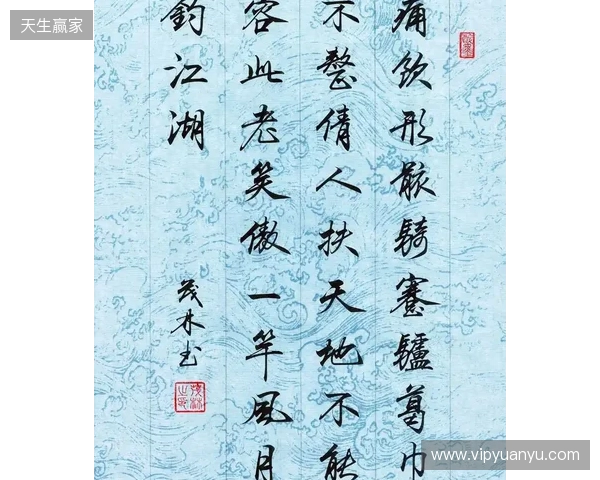 天生赢家
痛飲形骸騎蹇驢葛巾
不整倩人扶天地不能
容此老笑傲一竿風月
釣江湖
茂林书
www.vipyuanyu.com